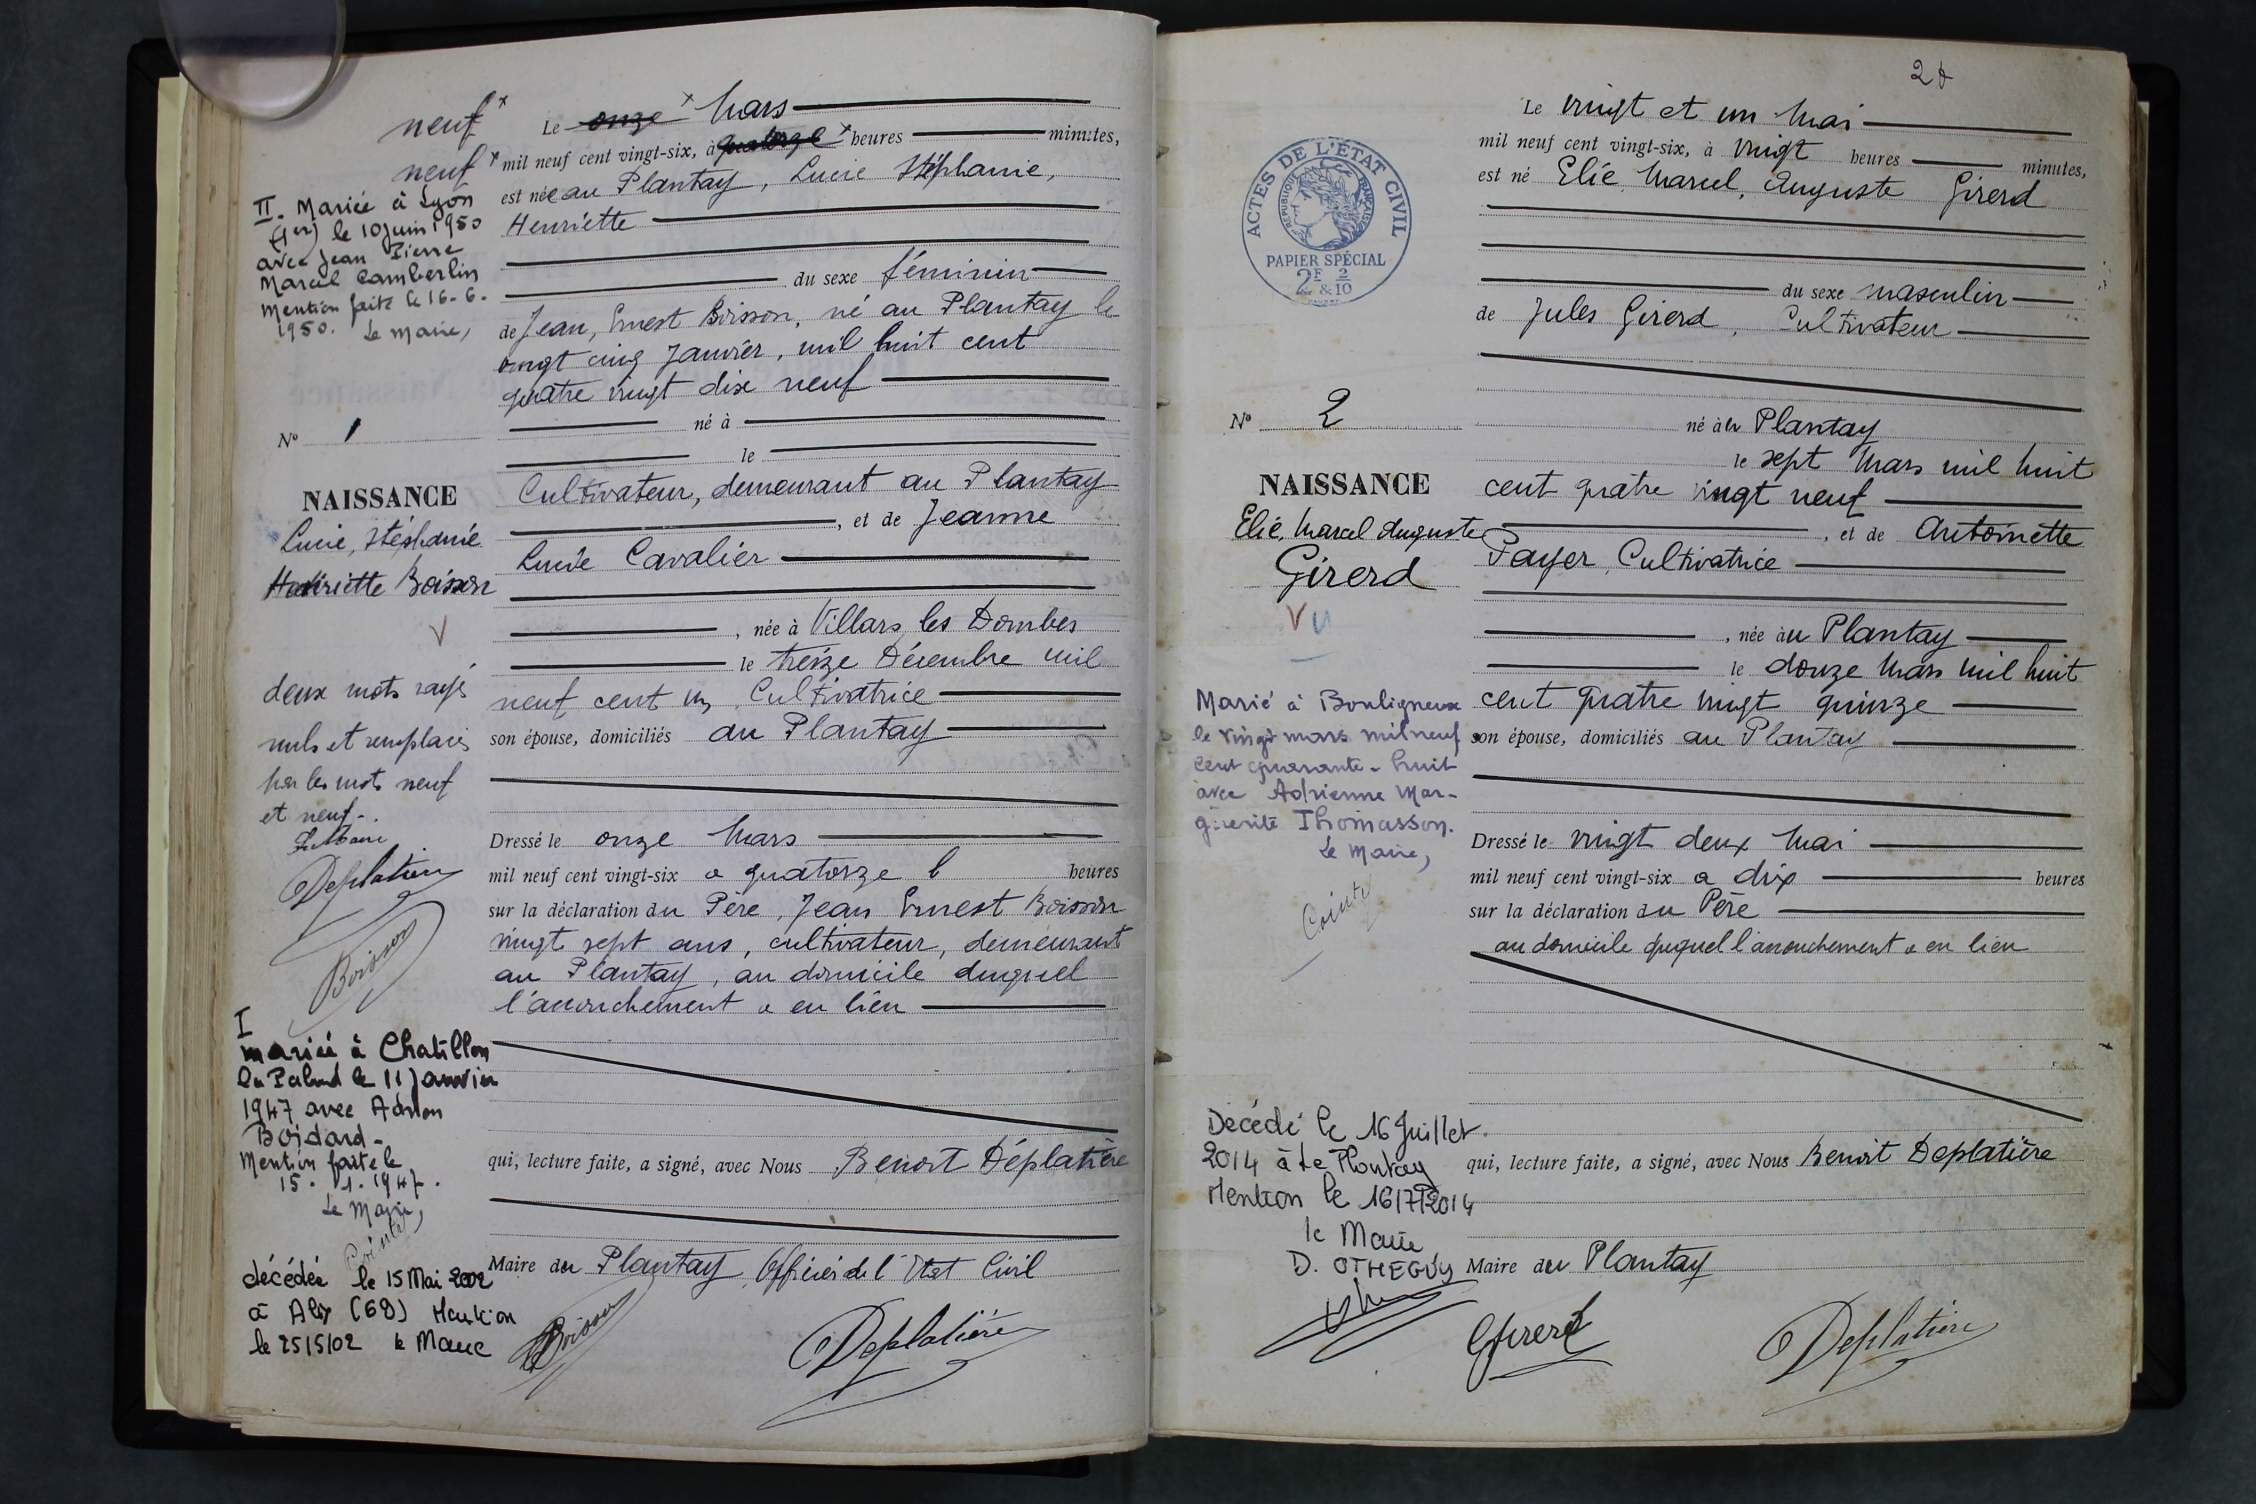 neuf x
Le onze x Mars
neuf x mil neuf cent vingt-six, à quatorze x heures minutes,
est née au Plantay, Lucie Stéphanie,
Henriette
du sexe féminin
de Jean, Ernest Boisson, né au Plantay le
vingt cinq Janvier, mil huit cent
quatre vingt dix neuf
né à
le
Cultivateur, demeurant au Plantay
, et de Jeanne
Lucie Cavalier
, née à Villars les Dombes
le treize Décembre mil
neuf cent un, Cultivatrice
son épouse, domiciliés au Plantay
Dressé le onze Mars
mil neuf cent vingt-six a quatorze h heures
sur la déclaration du Père, Jean Ernest Boisson
vingt sept ans, cultivateur, demeurant
au Plantay, au domicile duquel
l'accouchement a eu lieu
qui, lecture faite, a signé, avec Nous Benoit Déplatière
Maire du Plantay Officier de l'Etat Civil
Boisson
Deplatière
II. Mariée à Lyon
(1er) le 10 juin 1950
avec Jean Pierre
Marcel Camberlin
Mention faite le 16-6-
1950. Le Maire,
N° 1
NAISSANCE
Lucie, Stéphanie
Henriette Boisson
V
deux mots rayés
nuls et remplacés
par les mots neuf
et neuf-.
Le Maire
Deplatière
Boisson
I
mariée à Chatillon
la Palud le 11 Janvier
1947 avec Adrien
Boidard-
Mention faite le
15. 1. 1947.
Le Maire,
Cointy
décédée le 15 Mai 2002
à Alix (69) Mention
le 25/5/02 le Maire
Le vingt et un Mai
mil neuf cent vingt-six, à vingt heures minutes,
est né Elie, Marcel, Auguste Girerd
du sexe masculin
de Jules Girerd, Cultivateur
né au Plantay
le sept Mars mil huit
cent quatre vingt neuf
, et de Antoinette
Payer, Cultivatrice
, née au Plantay
le douze Mars mil huit
cent quatre vingt quinze
son épouse, domiciliés au Plantay
Dressé le vingt deux Mai
mil neuf cent vingt-six a dix heures
sur la déclaration du Père
au domicile duquel l'accouchement a eu lieu
qui, lecture faite, a signé, avec Nous Benoit Deplatière
Maire du Plantay
Girerd
Deplatière
ACTES DE L'ÉTAT CIVIL
RÉPUBLIQUE FRANÇAISE
PAPIER SPÉCIAL
2F & 2/10
N° 2
NAISSANCE
Elie, Marcel Auguste
Girerd
Vu
Marié à Bouligneux
le vingt mars mil neuf
cent quarante-huit
avec Adrienne Mar-
guerite Thomasson.
Le Maire,
Cointy
Décédé le 16 Juillet
2014 à Le Plantay
Mention le 16/7/2014
le Maire
D. OTHEGUY